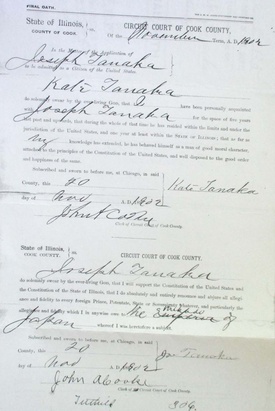 FINAL OATH.
State of Illinois,
COUNTY OF COOK.
ss.
CIRCUIT COURT OF COOK COUNTY.
Of the November Term, A. D. 1902
In the Matter of the Application of
Joseph Tanaka
to be admitted as a Citizen of the United States.
Kate Tanaka
do solemnly swear by the ever-living God, that I have been personally acquainted
with Joseph Tanaka for the space of five years
last past and upwards, that during the whole of that time he has resided within the limits and under the
jurisdiction of the United States, and one year at least within the State of Illinois; that so far as
my knowledge has extended, he has behaved himself as a man of good moral character,
attached to the principles of the Constitution of the United States, and well disposed to the good order
and happiness of the same.
Subscribed and sworn to before me, at Chicago, in said
County, this 20
Kate Tanaka
day of Nov 1902
John A Cooke
Clerk of Circuit Court of Cook County.
State of Illinois,
COOK COUNTY.
ss.
CIRCUIT COURT OF COOK COUNTY.
I, Joseph Tanaka
do solemnly swear by the ever-living God, that I will support the Constitution of the United States and
the Constitution of the State of Illinois, that I do absolutely and entirely renounce and abjure all allegi-
ance and fidelity to every Foreign Prince, Potentate, State or Sovereignty Whatever, and particularly the
allegiance and fidelity which I in anywise owe to the of
Japan whereof I was heretofore a subject.
Subscribed and sworn to before me, at Chicago, in said
County, this 20
day of Nov 1902
John A Cooke
Clerk of Circuit Court of Cook County.
306